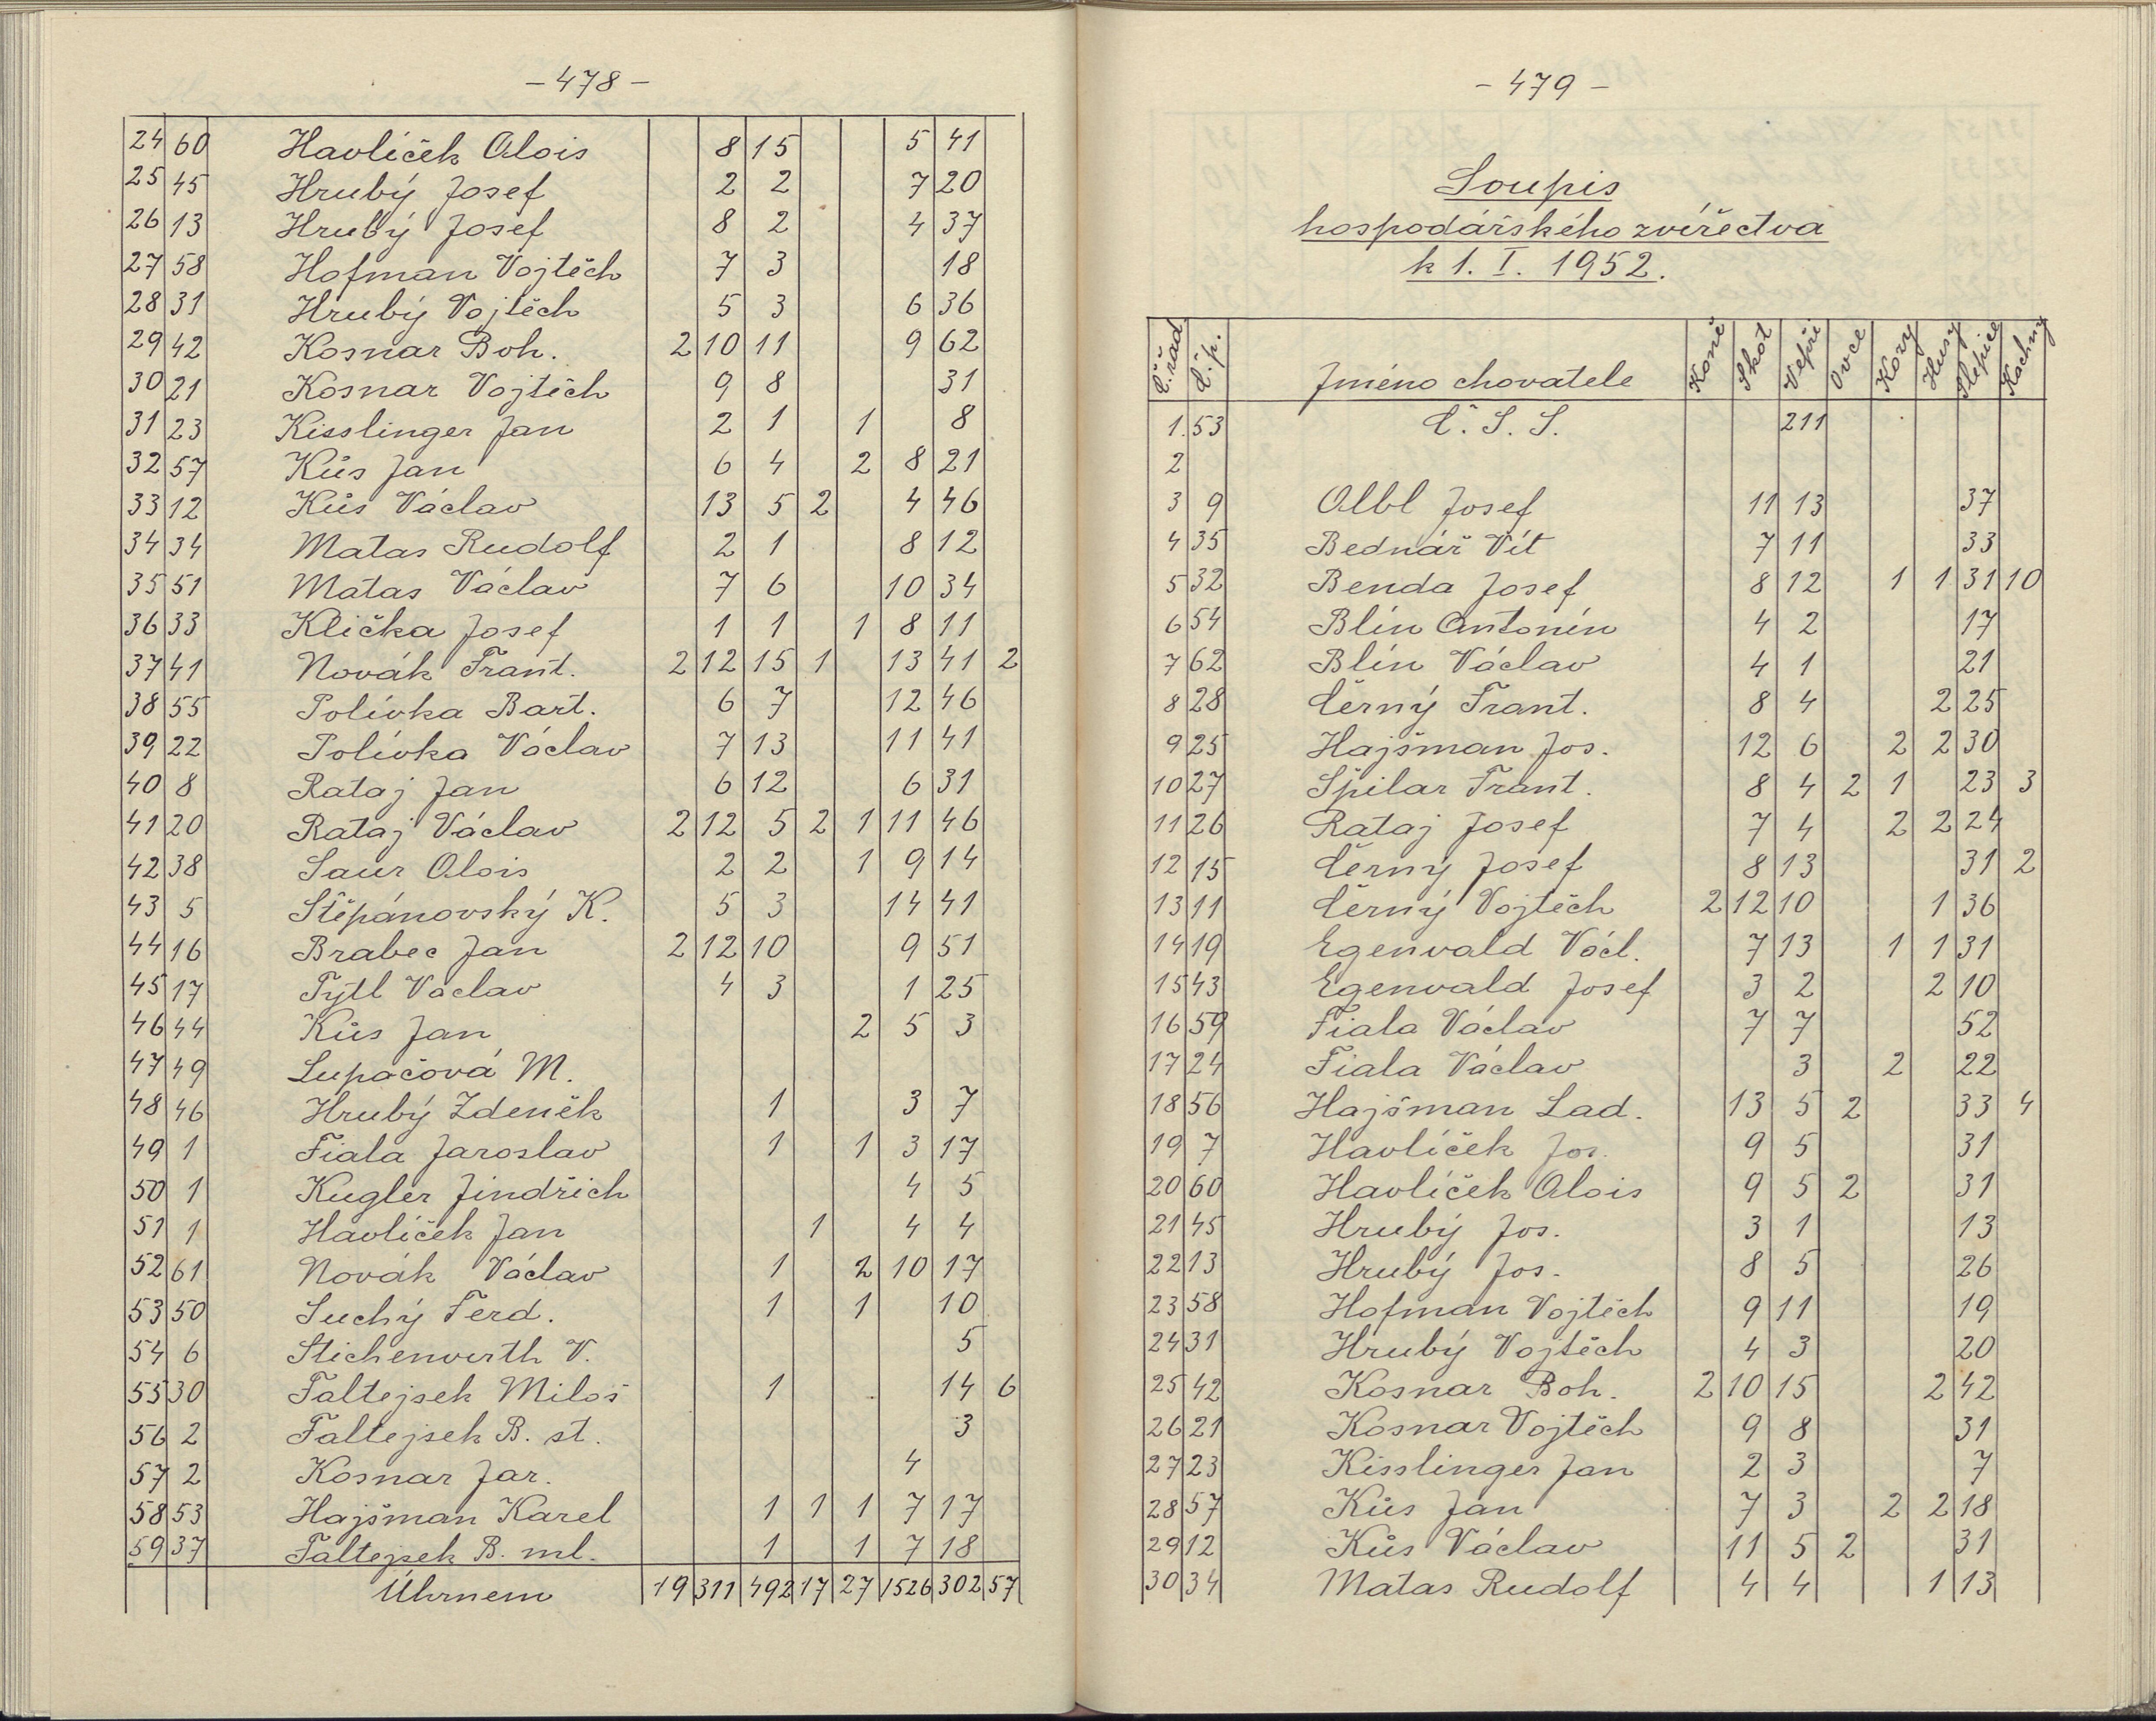 - 478 -
24 60 Havlíček Alois 8 15 5 41
25 45 Hrubý Josef 2 2 7 20
26 13 Hrubý Josef 8 2 4 37
27 58 Hofman Vojtěch 7 3 18
28 31 Hrubý Vojtěch 5 3 6 36
29 42 Kosnar Boh. 2 10 11 9 62
30 21 Kosnar Vojtěch 9 8 31
31 23 Kisslinger Jan 2 1 1 8
32 57 Kůs Jan 6 4 2 8 21
33 12 Kůs Václav 13 5 2 4 46
34 34 Matas Rudolf 2 1 8 12
35 51 Matas Václav 7 6 10 34
36 33 Klička Josef 1 1 1 8 11
37 41 Novák Frant. 2 12 15 1 13 41 2
38 55 Polívka Bart. 6 7 12 46
39 22 Polívka Václav 7 13 11 41
40 8 Rataj Jan 6 12 6 31
41 20 Rataj Václav 2 12 5 2 1 11 46
42 38 Saur Alois 2 2 1 9 14
43 5 Štěpánovský K. 5 3 14 41
44 16 Brabec Jan 2 12 10 9 51
45 17 Tytl Václav 4 3 1 25
46 44 Kůs Jan 2 5 3
47 49 Lupačová M.
48 46 Hrubý Zdeněk 1 3 7
49 1 Fiala Jaroslav 1 1 3 17
50 1 Kugler Jindřich 4 5
51 1 Havlíček Jan 1 4 4
52 61 Novák Václav 1 2 10 17
53 50 Suchý Ferd. 1 1 10
54 6 Stichenwirth V. 5
55 30 Faltejsek Miloš 1 14 6
56 2 Faltejsek B. st. 3
57 2 Kosnar Jar. 4
58 53 Hajšman Karel 1 1 1 7 17
59 37 Faltejsek B. ml. 1 1 7 18
Úhrnem 19 311 492 17 27 1526 302 57
- 479 -
Soupis
hospodářského zvířectva
k 1. I. 1952.
Č. řad. č. p. Jméno chovatele Koně Skot Vepři Ovce Kozy Husy Slepice Kachny
1. 53 Č. S. S. 211
2
3 9 Albl Josef 11 13 37
4 35 Bednář Vít 7 11 33
5 32 Benda Josef 8 12 1 1 31 10
6 54 Blín Antonín 4 2 17
7 62 Blín Václav 4 1 21
8 28 Černý Frant. 8 4 2 25
9 25 Hajšman Jos. 12 6 2 2 30
10 27 Špilar Frant. 8 4 2 1 23 3
11 26 Rataj Josef 7 4 2 2 24
12 15 Černý Josef 8 13 31 2
13 11 Černý Vojtěch 2 12 10 1 36
14 19 Egenvald Václ. 7 13 1 1 31
15 43 Egenvald Josef 3 2 2 10
16 59 Fiala Václav 7 7 52
17 24 Fiala Václav 3 2 22
18 56 Hajšman Lad. 13 5 2 33 4
19 7 Havlíček Jos. 9 5 31
20 60 Havlíček Alois 9 5 2 31
21 45 Hrubý Jos. 3 1 13
22 13 Hrubý Jos. 8 5 26
23 58 Hofman Vojtěch 9 11 19
24 31 Hrubý Vojtěch 4 3 20
25 42 Kosnar Boh. 2 10 15 2 42
26 21 Kosnar Vojtěch 9 8 31
27 23 Kisslinger Jan 2 3 7
28 57 Kůs Jan 7 3 2 2 18
29 12 Kůs Václav 11 5 2 31
30 34 Matas Rudolf 4 4 1 13